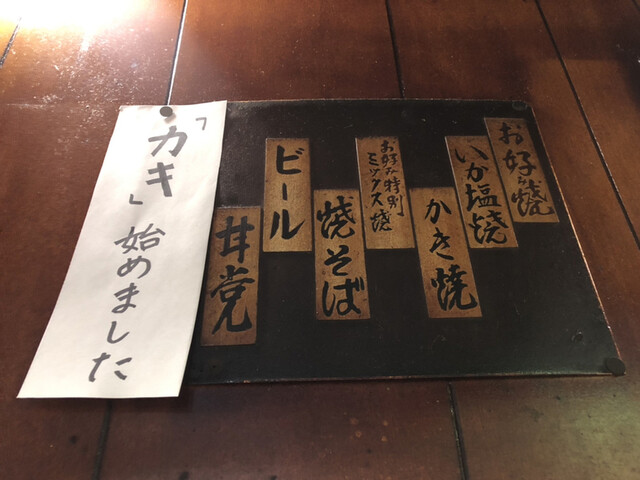 お好み焼
いか塩焼
かき焼
お好み特別
ミックス焼
焼そば
ビール
甘党
「カキ」始めました